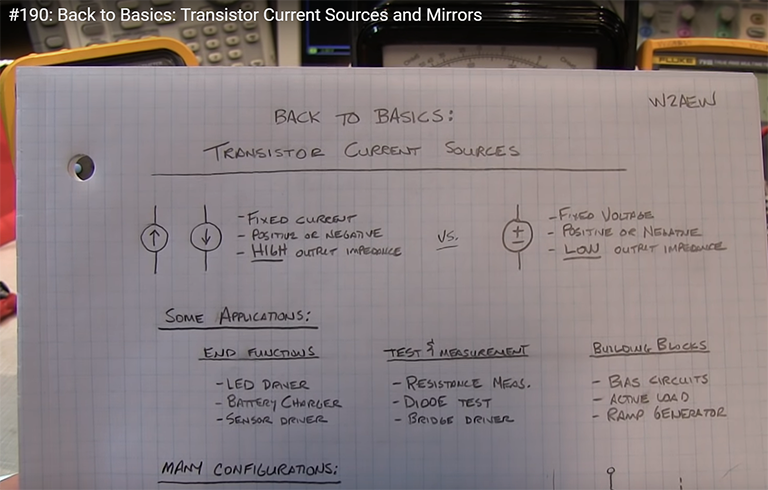 #190: Back to Basics: Transistor Current Sources and Mirrors
FLUKE
W2AEW
BACK TO BASICS:
TRANSISTOR CURRENT SOURCES
- FIXED CURRENT
- POSITIVE OR NEGATIVE
- HIGH OUTPUT IMPEDANCE
VS.
- FIXED VOLTAGE
- POSITIVE OR NEGATIVE
- LOW OUTPUT IMPEDANCE
SOME APPLICATIONS:
END FUNCTIONS
- LED DRIVER
- BATTERY CHARGER
- SENSOR DRIVER
TEST & MEASUREMENT
- RESISTANCE MEAS.
- DIODE TEST
- BRIDGE DRIVER
BUILDING BLOCKS
- BIAS CIRCUITS
- ACTIVE LOAD
- RAMP GENERATOR
MANY CONFIGURATIONS: